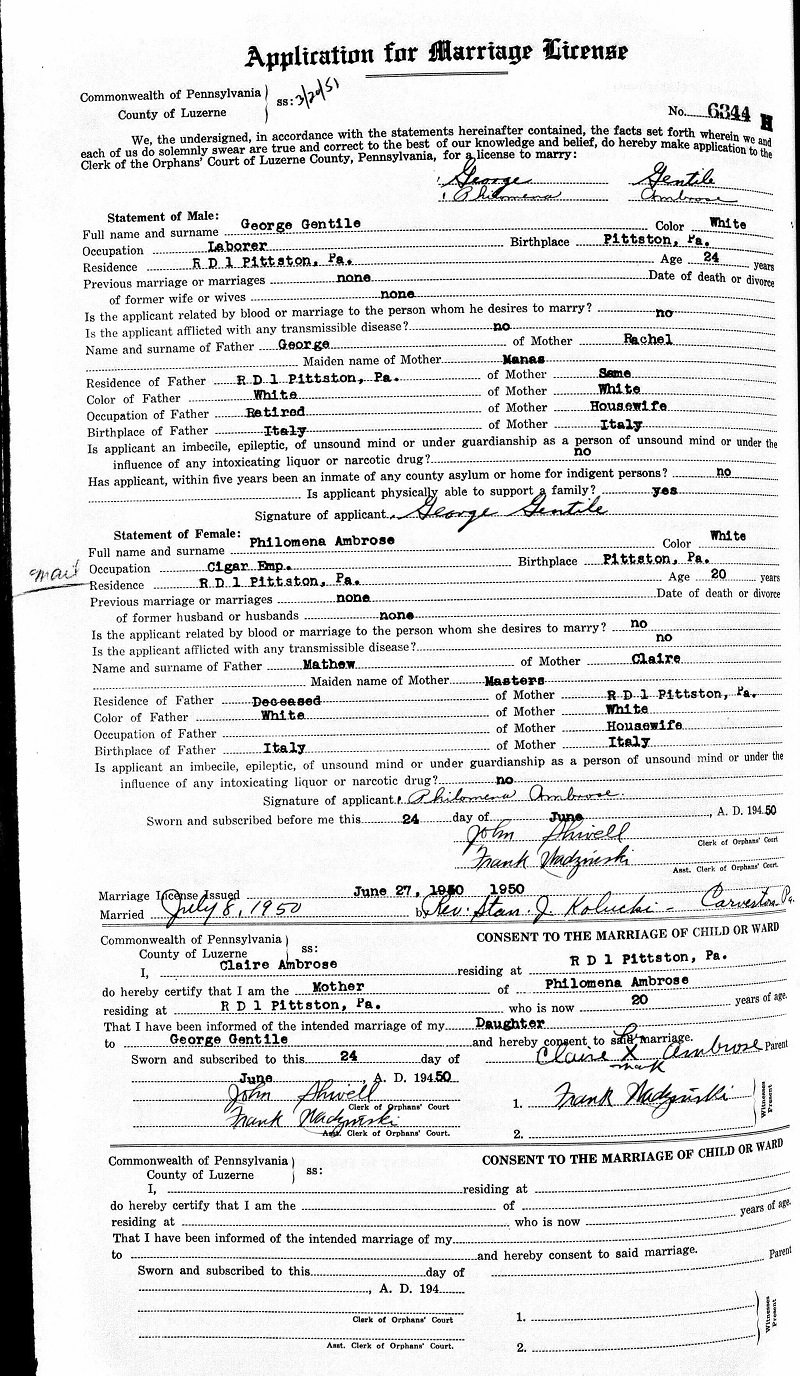 Application for Marriage License
Commonwealth of Pennsylvania
County of Luzerne
ss: 3/20/51
No. 6344 H
We, the undersigned, in accordance with the statements hereinafter contained, the facts set forth wherein we and
each of us do solemnly swear are true and correct to the best of our knowledge and belief, do hereby make application to the
Clerk of the Orphans' Court of Luzerne County, Pennsylvania, for a license to marry:
George Gentile
Philomena Ambrose
Statement of Male:
Full name and surname George Gentile Color White
Occupation Laborer Birthplace Pittston, Pa.
Residence R D 1 Pittston, Pa. Age 24 years
Previous marriage or marriages none Date of death or divorce
of former wife or wives none
Is the applicant related by blood or marriage to the person whom he desires to marry? no
Is the applicant afflicted with any transmissible disease? no
Name and surname of Father George of Mother Rachel
Maiden name of Mother Manas
Residence of Father R D 1 Pittston, Pa. of Mother Same
Color of Father White of Mother White
Occupation of Father Retired of Mother Housewife
Birthplace of Father Italy of Mother Italy
Is applicant an imbecile, epileptic, of unsound mind or under guardianship as a person of unsound mind or under the
influence of any intoxicating liquor or narcotic drug? no
Has applicant, within five years been an inmate of any county asylum or home for indigent persons? no
Is applicant physically able to support a family? yes
Signature of applicant George Gentile
Statement of Female:
Full name and surname Philomena Ambrose Color White
Occupation Cigar Emp. Birthplace Pittston, Pa.
Residence R D 1 Pittston, Pa. Age 20 years
Previous marriage or marriages none Date of death or divorce
of former husband or husbands none
Is the applicant related by blood or marriage to the person whom she desires to marry? no
Is the applicant afflicted with any transmissible disease? no
Name and surname of Father Mathew of Mother Claire
Maiden name of Mother Masters
Residence of Father Deceased of Mother R D 1 Pittston, Pa.
Color of Father White of Mother White
Occupation of Father of Mother Housewife
Birthplace of Father Italy of Mother Italy
Is applicant an imbecile, epileptic, of unsound mind or under guardianship as a person of unsound mind or under the
influence of any intoxicating liquor or narcotic drug? no
Signature of applicant Philomena Ambrose.
Sworn and subscribed before me this 24 day of June, A. D. 194.50
John
Clerk of Orphans' Court
Frank
Asst. Clerk of Orphans' Court
Marriage License Issued June 27, 1950 1950
Married July 8, 1950 by Rev. Stan. J. Kolucki - Carverton Pa.
Commonwealth of Pennsylvania
County of Luzerne
ss:
CONSENT TO THE MARRIAGE OF CHILD OR WARD
I, Claire Ambrose residing at R D 1 Pittston, Pa.
do hereby certify that I am the Mother of Philomena Ambrose
residing at R D 1 Pittston, Pa. who is now 20 years of age.
That I have been informed of the intended marriage of my Daughter
to George Gentile and hereby consent to said marriage.
Sworn and subscribed to this 24 day of
Claire her X mark Ambrose Parent
June A. D. 194.50
John
Clerk of Orphans' Court
Frank
Asst. Clerk of Orphans' Court.
1. Frank
2.
Witnesses Present
Commonwealth of Pennsylvania
County of Luzerne
ss:
CONSENT TO THE MARRIAGE OF CHILD OR WARD
I, residing at
do hereby certify that I am the of
residing at who is now years of age.
That I have been informed of the intended marriage of my
to and hereby consent to said marriage.
Sworn and subscribed to this day of Parent
, A. D. 194
Clerk of Orphans' Court
Asst. Clerk of Orphans' Court.
1.
2.
Witnesses Present